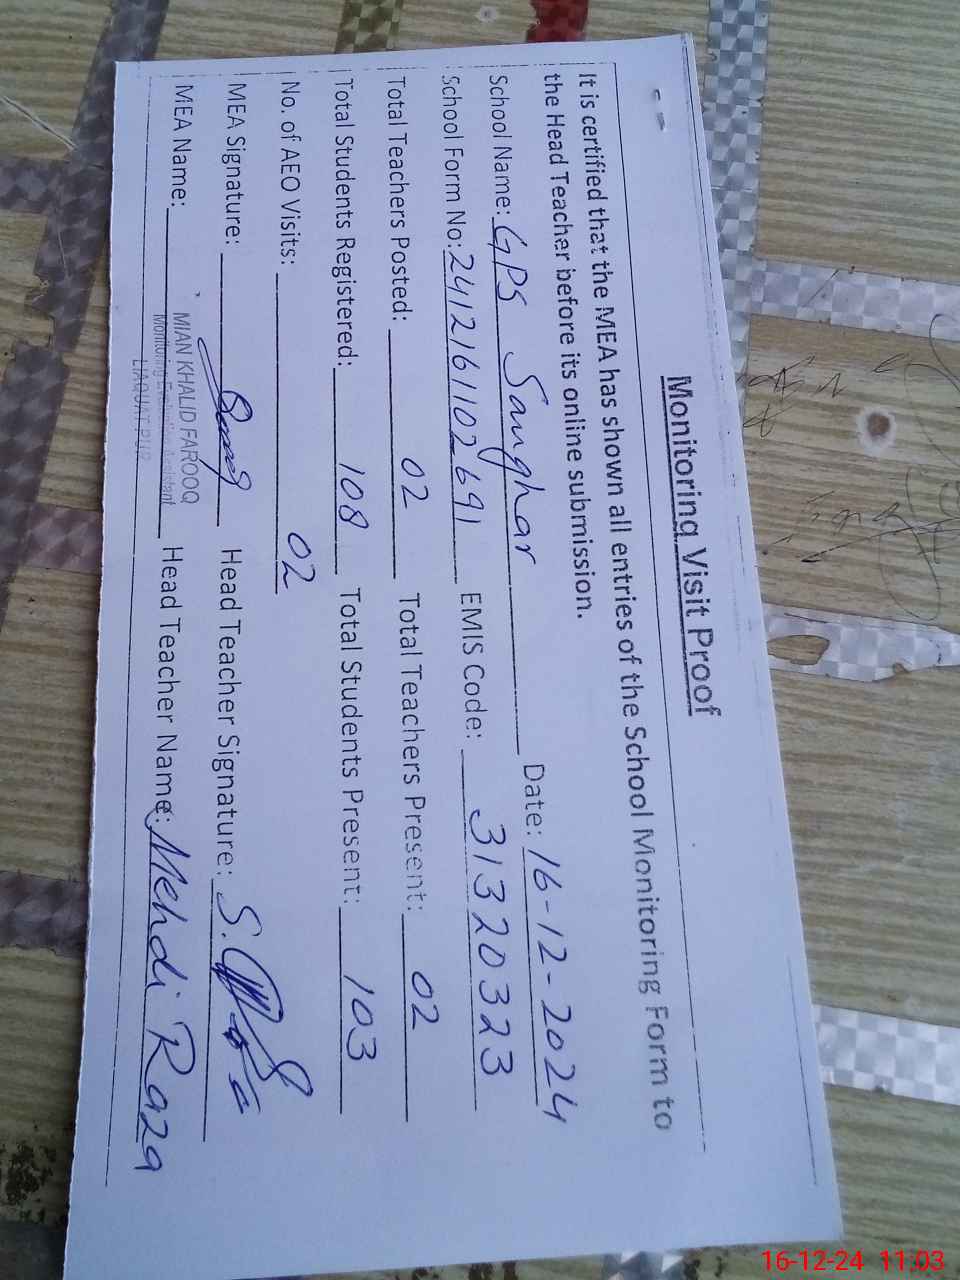 Monitoring Visit Proof
It is certified that the MEA has shown all entries of the School Monitoring Form to
the Head Teacher before its online submission.
School Name: GPS Sanghar Date: 16-12-2024
School Form No: 2412161102691 EMIS Code: 31320323
Total Teachers Posted: 02 Total Teachers Present: 02
Total Students Registered: 108 Total Students Present: 103
No. of AEO Visits: 02
MEA Signature: Head Teacher Signature:
MEA Name: MIAN KHALID FAROOQ Head Teacher Name: Mehdi Raza
Monitoring Evaluation Assistant
LIAQUAT PUR
16-12-24 11:03